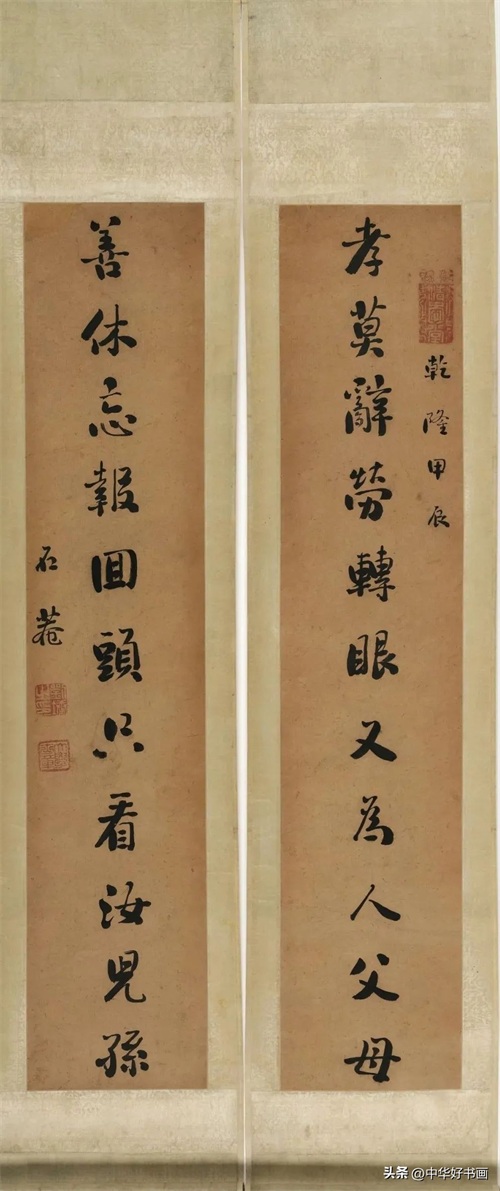 乾隆甲辰
孝莫辭勞轉眼又為人父母
善休忘報回頭只看汝兒孫
石菴
头条 @中华好书画